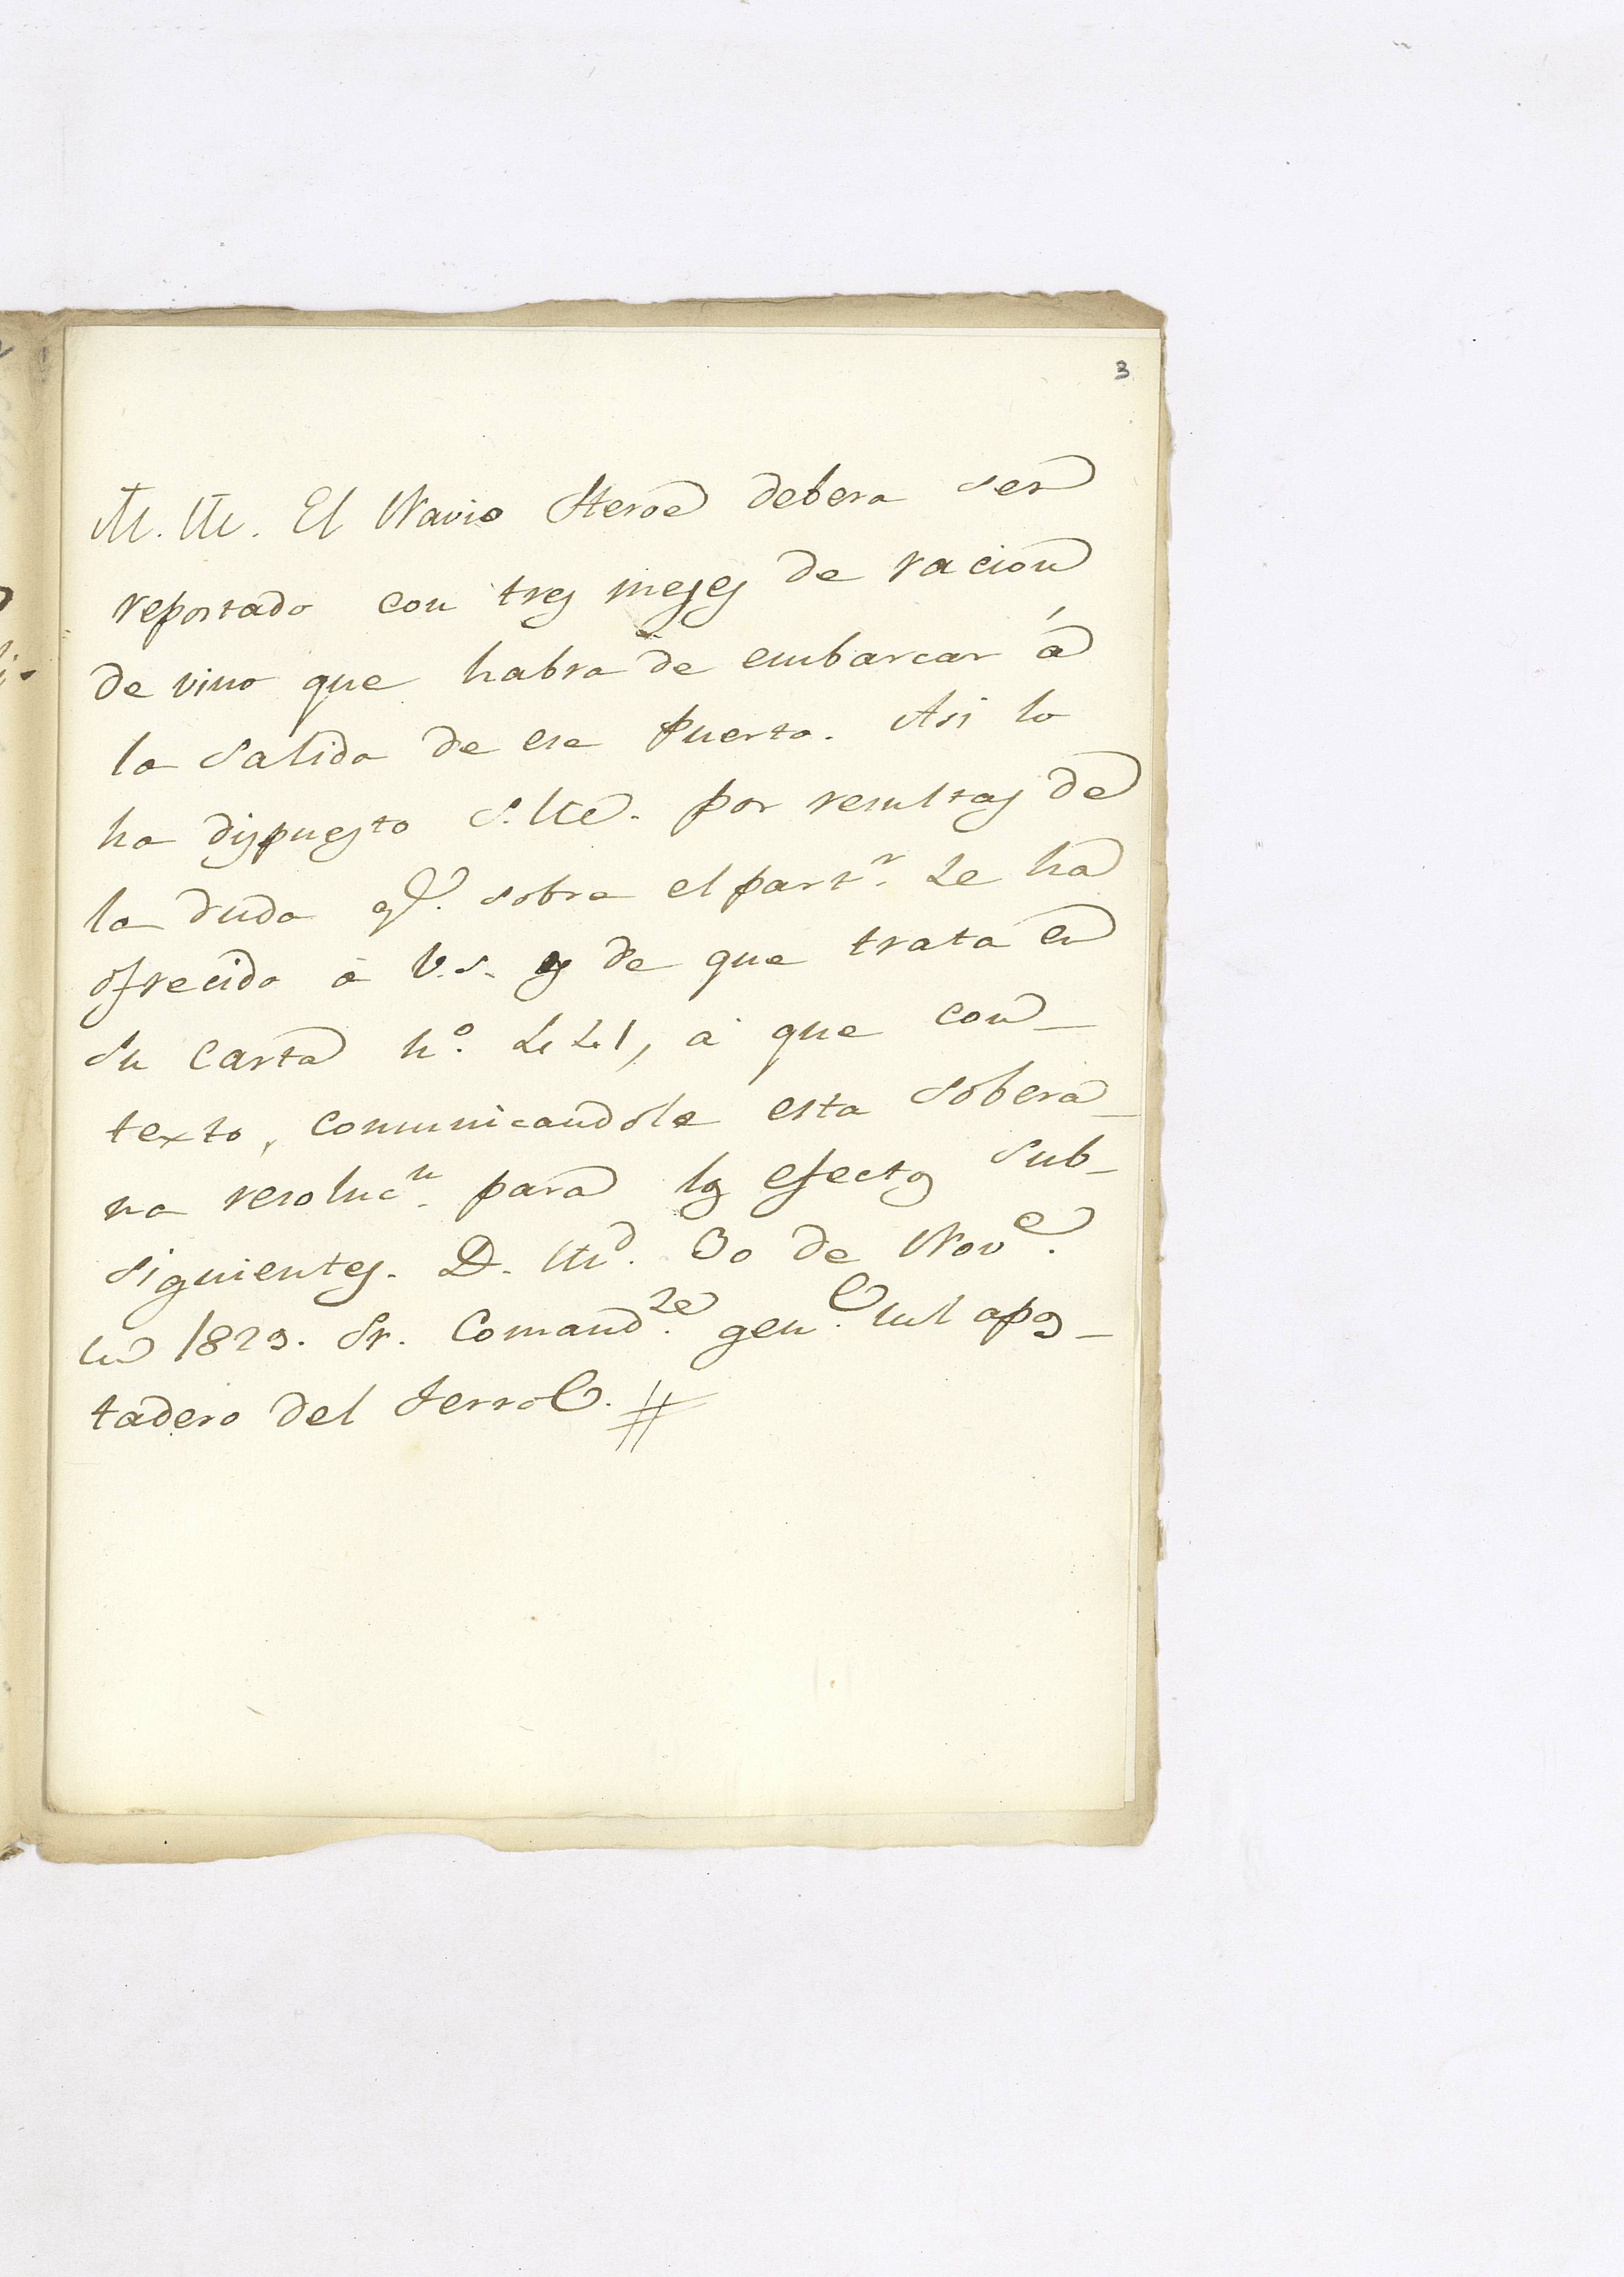 3
M. M. El Navio Heroe debera ser
reportado con tres meses de racion
de vino que habra de embarcar á
la salida de ese puerto. Asi lo
ha dispuesto S.M. por resultas de
la duda q.e sobre el part.r Le ha
ofrecido á V.S. y de que trata en
su carta n.o 441, á que con_
texto, comunicandole esta sobera_
na resoluc.n para los efectos sub_
siguientes. D. M.d 30 de Nov.e
1829. Sr. Comand.te gen.l del apos_
tadero del Ferrol. #